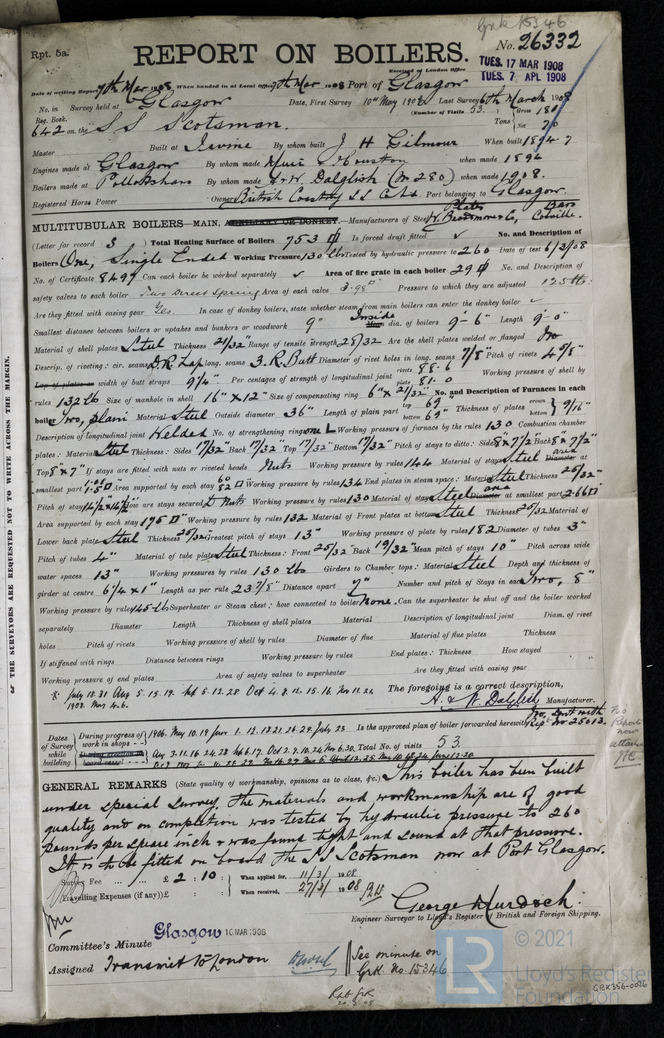 Grk 15346
Rpt. 5a.
REPORT ON BOILERS.
No. 26332
Received at London Office
TUES. 17 MAR 1908
TUES. 7 APL 1908
Date of writing Report 7th Mar 1908 When handed in at Local Office 7th Mar 1908 Port of Glasgow
No. in Survey held at Glasgow Date, First Survey 10th May 1906 Last Survey 6th March 1908
Reg. Book. (Number of Visits 53.)
642 on the SS Scotsman. Tons Gross 181 Net 70
Master Built at Irvine By whom built J H Gilmour When built 1894.7
Engines made at Glasgow By whom made Muir & Houston when made 1894
Boilers made at Pollokshaws By whom made A & W. Dalglish (No 280) when made 1908.
Registered Horse Power Owner British Country SS Co Ltd Port belonging to Glasgow
MULTITUBULAR BOILERS — MAIN, AUXILIARY OR DONKEY. — Manufacturers of Steel Plates W. Beardmore & Co, Bars Colville.
(Letter for record 3) Total Heating Surface of Boilers 753 Is forced draft fitted ✓ No. and Description of
Boilers One, Single Ended Working Pressure 130 lbs Tested by hydraulic pressure to 260 Date of test 6/3/08
No. of Certificate 8497 Can each boiler be worked separately ✓ Area of fire grate in each boiler 29 No. and Description of
safety valves to each boiler Two Direct Spring Area of each valve 3.98 Pressure to which they are adjusted 125 lbs.
Are they fitted with easing gear Yes. In case of donkey boilers, state whether steam from main boilers can enter the donkey boiler ✓
Smallest distance between boilers or uptakes and bunkers or woodwork 9" Inside dia. of boilers 9'-6" Length 9'-0"
Material of shell plates Steel Thickness 21/32" Range of tensile strength 28/32 Are the shell plates welded or flanged No
Descrip. of riveting: cir. seams D.R. Lap long. seams 3.R. Butt Diameter of rivet holes in long. seams 7/8" Pitch of rivets 4 5/8"
Lap of plates or width of butt straps 9 1/4" Per centages of strength of longitudinal joint rivets 88.6 plate 81.0 Working pressure of shell by
rules 132 lb Size of manhole in shell 16" x 12" Size of compensating ring 6" x 21/32" No. and Description of Furnaces in each
boiler Two, plain Material Steel Outside diameter 36" Length of plain part top 69" bottom 69" Thickness of plates crown bottom 9/16"
Description of longitudinal joint Welded No. of strengthening rings one L Working pressure of furnace by the rules 130 Combustion chamber
plates: Material Steel Thickness: Sides 17/32" Back 17/32" Top 17/32" Bottom 17/32" Pitch of stays to ditto: Sides 8" x 7 1/2" Back 8" x 7 1/2"
Top 8" x 7" If stays are fitted with nuts or riveted heads Nuts Working pressure by rules 144 Material of stays Steel Diameter area at
smallest part Area supported by each stay 60 Working pressure by rules 134 End plates in steam space: Material Steel Thickness 25/32"
Pitch of stays 14 1/2" x 14 1/2" How are stays secured D Nuts Working pressure by rules 130 Material of stays Steel Diameter area at smallest part 2.66
Area supported by each stay 195 Working pressure by rules 132 Material of Front plates at bottom Steel Thickness 25/32" Material of
Lower back plate Steel Thickness 25/32" Greatest pitch of stays 13" Working pressure of plate by rules 182 Diameter of tubes 3"
Pitch of tubes 4" Material of tube plates Steel Thickness: Front 25/32" Back 19/32" Mean pitch of stays 10" Pitch across wide
water spaces 13" Working pressures by rules 130 lbs Girders to Chamber tops: Material Steel Depth and thickness of
girder at centre 6 1/4" x 1" Length as per rule 23 7/8" Distance apart 7" Number and pitch of Stays in each Two, 8"
Working pressure by rules 145 lbs Superheater or Steam chest; how connected to boiler None. Can the superheater be shut off and the boiler worked
separately Diameter Length Thickness of shell plates Material Description of longitudinal joint Diam. of rivet
holes Pitch of rivets Working pressure of shell by rules Diameter of flue Material of flue plates Thickness
If stiffened with rings Distance between rings Working pressure by rules End plates: Thickness How stayed
Working pressure of end plates Area of safety valves to superheater Are they fitted with easing gear
The foregoing is a correct description,
A. & W. Dalglish Manufacturer.
Dates of Survey while building
During progress of work in shops - -
During erection on board vessel - - -
Is the approved plan of boiler forwarded herewith No, Sent with
Total No. of visits 53.
GENERAL REMARKS (State quality of workmanship, opinions as to class, &c.) This boiler has been built
under special survey. The materials and workmanship are of good
quality and on completion was tested by hydraulic pressure to 260
pounds per square inch & was found tight and sound at that pressure.
It is to be fitted on board the SS Scotsman now at Port Glasgow.
Survey Fee ... ... £ 2 : 10 : When applied for, 11/3/1908
Travelling Expenses (if any) £ : : When received, 27/3/1908
George Murdoch.
Engineer Surveyor to Lloyd's Register of British and Foreign Shipping.
Committee's Minute Glasgow 16 MAR 1908
Assigned Transmit to London
See minute on
Grk. No 15346
OF THE SURVEYORS ARE REQUESTED NOT TO WRITE ACROSS THE MARGIN.
LR
© 2021
Lloyd's Register
Foundation
GRK356-0026